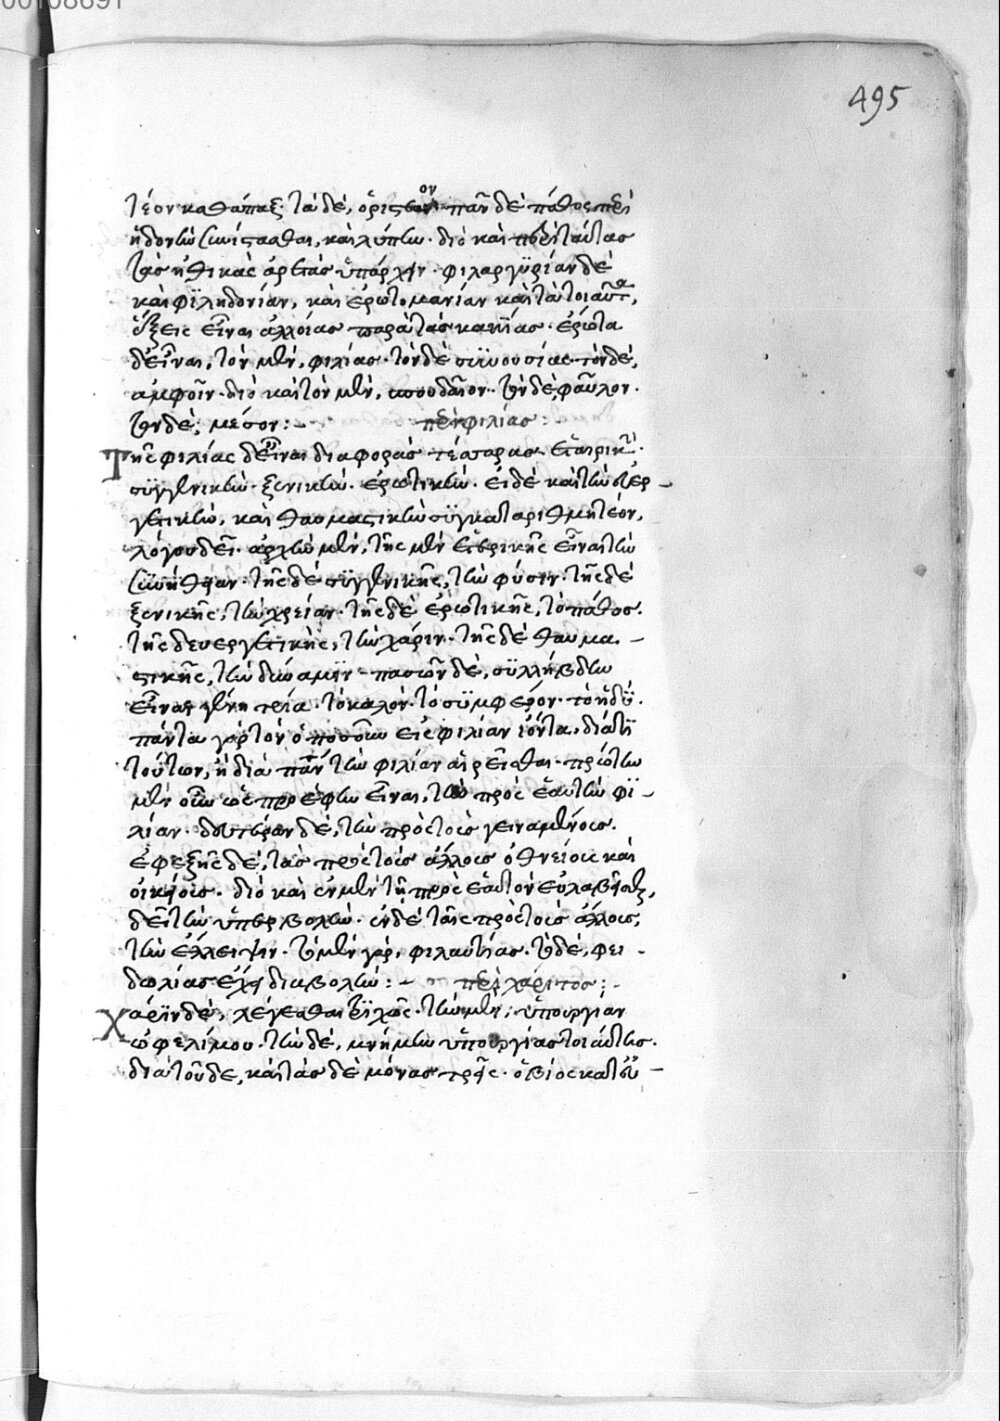 495
τέον καθάπαξ· τὰ δὲ, ὁριστέον· πᾶν δὲ πάθος περὶ
ἡδονὴν συνίστασθαι, καὶ λύπην· διὸ καὶ περὶ ταύτας
τὰς ἠθικὰς ἀρετὰς ὑπάρχειν· φιλαργϋρίαν δὲ
καὶ φϊληδονίαν, καὶ ἐρωτομανίαν καὶ τὰ τοιαῦτα,
ἕξεις εἶναι ἀλλοίας παρὰ τὰς κακίας· ἔρωτα
δ' εἶναι, τὸν μὲν, φιλίας· τὸν δὲ συνουσίας· τὸν δὲ,
ἀμφοῖν· διὸ καὶ τὸν μὲν, σπουδαῖον· τὸν δὲ, φαῦλον·
τὸν δὲ, μέσον:~ περὶ φιλίας:
Τῆς φιλίας δ' εἶναι διαφορὰς τέσσαρας ἑταιρικὴν·
συγγενικὴν· ξενικὴν· ἐρωτικὴν· εἰ δὲ καὶ τὴν εὐερ–
γετικὴν, καὶ θαυμαστικὴν συγκαταριθμητέον,
λόγου δεῖ· ἀρχὴν μὲν, τῆς μὲν ἑταιρικῆς εἶναι τὴν
συνήθειαν· τῆς δὲ συγγενικῆς, τὴν φύσιν· τῆς δὲ
ξενικῆς, τὴν χρείαν· τῆς δὲ ἐρωτικῆς, τὸ πάθος·
τῆς δ' εὐεργετικῆς, τὴν χάριν· τῆς δὲ θαυμα–
στικῆς, τὴν δύναμιν· πασῶν δὲ, συλλήβδην
εἶναι τέλη τρία· τὸ καλὸν· τὸ συμφέρον· τὸ ἡδὺ·
πάντα γὰρ τὸν ὁποσοῦν εἰς φιλίαν ἰόντα, διά τι
τούτων, ἢ διὰ πάντα τὴν φιλίαν αἱρεῖσθαι· πρώτην
μὲν οὖν ὡς προέφην εἶναι, τὴν πρὸς ἑαυτὸν φι–
λίαν· δευτέραν δὲ, τὴν πρὸς τοὺς γειναμένους·
ἐφεξῆς δὲ, τὰς πρὸς τοὺς ἄλλους ὀθνείους καὶ
οἰκείους· διὸ καὶ ἐν μὲν τῇ πρὸς ἑαυτὸν εὐλαβεῖσθαι,
δεῖ τὴν ὑπερβολὴν· ἐν δὲ ταῖς πρὸς τοὺς ἄλλους,
τὴν ἔλλειψιν· τὸ μὲν γὰρ, φιλαυτίας· τὸ δὲ, φει–
δωλίας ἔχει διαβολήν:~ περὶ χάριτος:~
Χάριν δὲ, λέγεσθαι τριχῶς· τὴν μὲν, ὑπουργίαν
ὠφελίμου· τὴν δὲ, μνήμην ὑπουργίας τοιαύτης·
διὰ τοῦ δε, καὶ τὰς δὲ μόνας τρεῖς· ὁ βίος κατευ–